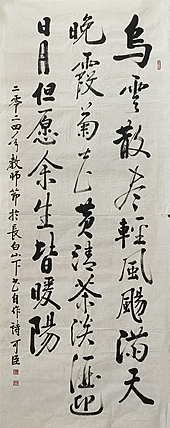 乌云散尽轻风飏满天
晚霞菊花黄清茶淡酒迎
日月但愿余生皆暖阳
二零二四年教师节於长白山下书自作诗可臣